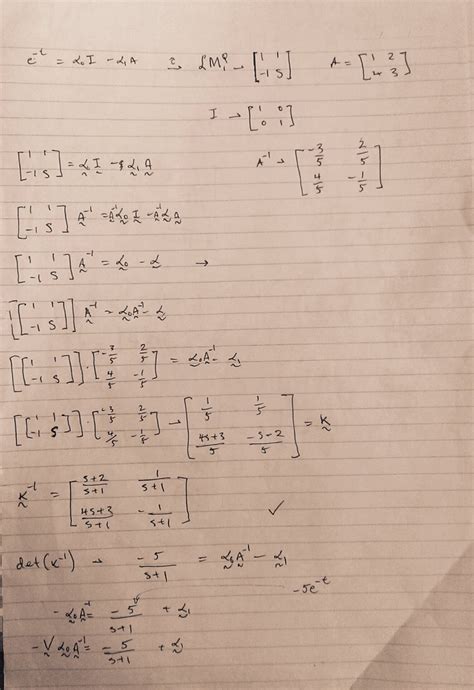 e^-t = α₀I - α₁A → [1 1; -1 5] A = [1 2; 4 3]
I → [1 0; 0 1]
[1 1; -1 5] = α₀I - α₁A A^-1 → [-3/5 2/5; 4/5 -1/5]
[1 1; -1 5] A^-1 = A^-1 α₀ I - A^-1 α₁ A
[1 1; -1 5] A^-1 = α₀ - α →
[[1 1; -1 5]] A^-1 = α₀A^-1 - α₁
[[1 1; -1 5]] · [-3/5 2/5; 4/5 -1/5] = α₀A^-1 - α₁
[[1 1; -1 5]] · [-3/5 2/5; 4/5 -1/5] → [1/5 1/5; 4s+3/5 -s-2/5] = K
K^-1 = [s+2/s+1 1/s+1; 4s+3/s+1 -1/s+1] ✓
det(K^-1) → -5/s+1 = α₀A^-1 - α₁
-5e^-t
-α₀A^-1 = -5/s+1 + α₁
-V α₀A^-1 = -5/s+1 + α₁